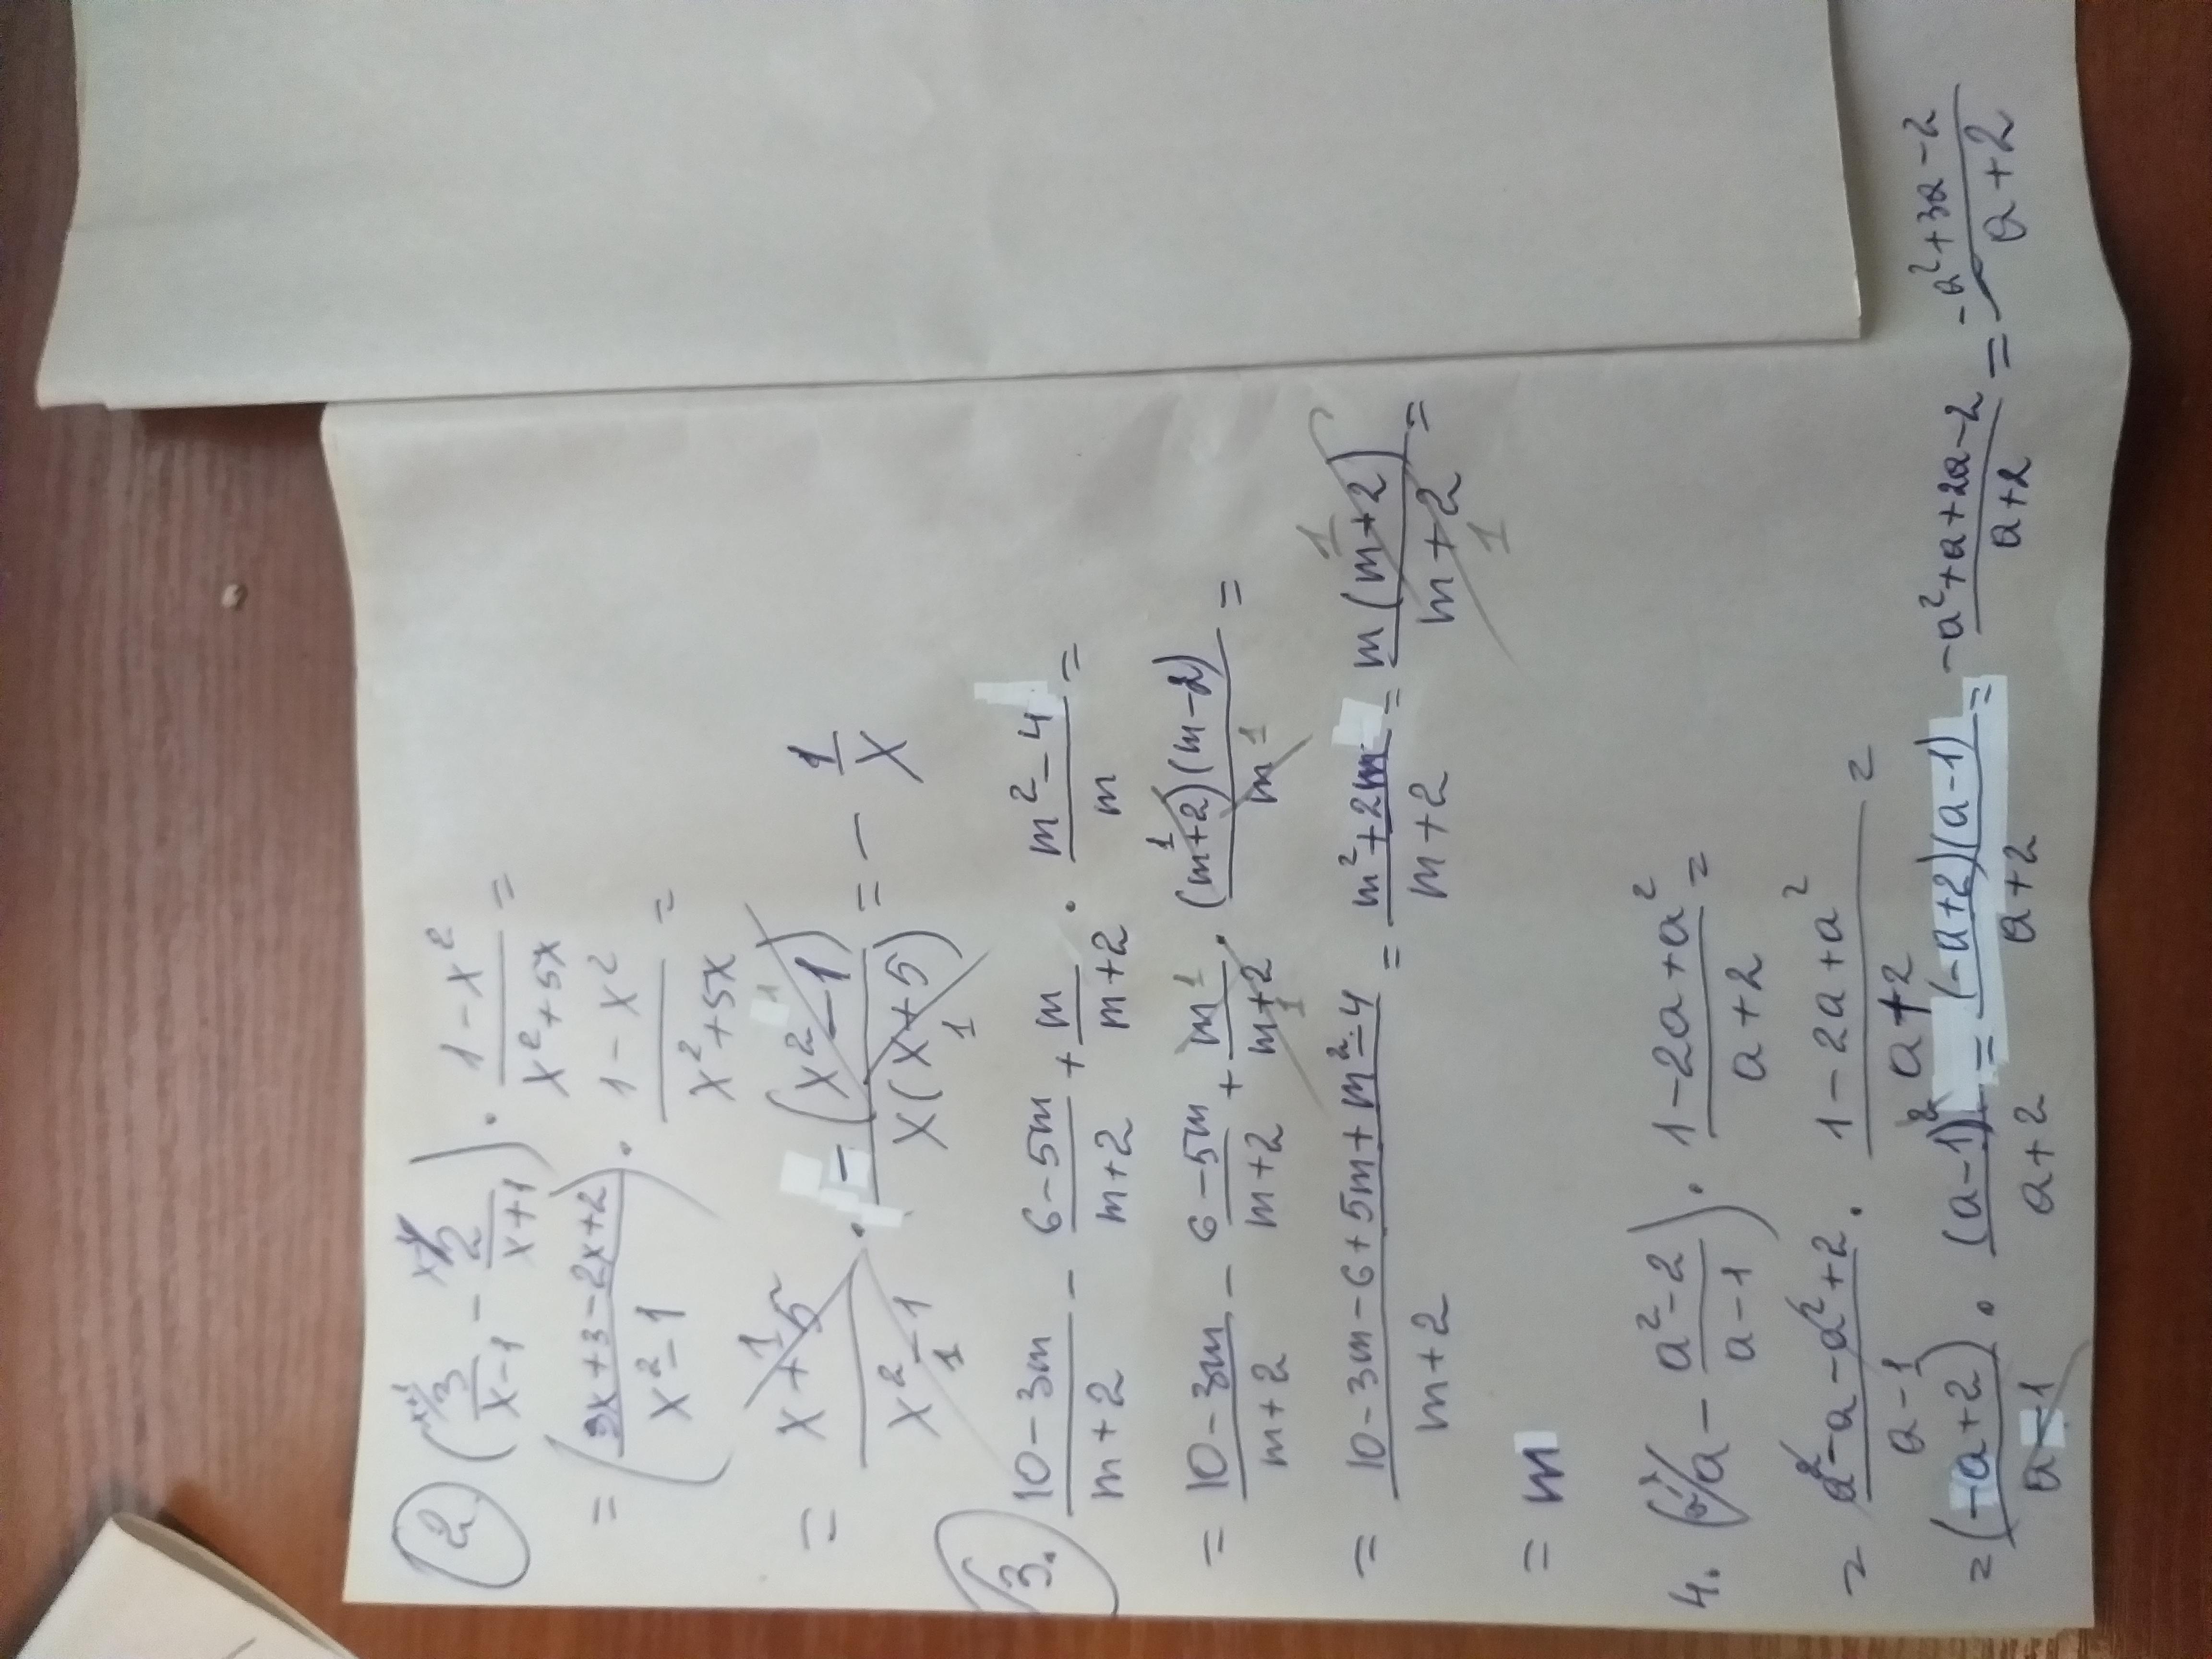 2. (3/(x-1) - 2/(x+1)) · (1-x²)/(x²+5x) =
= ((3x+3-2x+2)/(x²-1)) · (1-x²)/(x²+5x) =
= (x+5)/(x²-1) · -(x²-1)/(x(x+5)) = - 1/x
3. (10-3m)/(m+2) - (6-5m)/(m+2) + m/(m+2) · (m²-4)/m =
= (10-3m)/(m+2) - (6-5m)/(m+2) + m/(m+2) · ((m+2)(m-2))/m =
= (10-3m-6+5m+m²-4)/(m+2) = (m²+2m)/(m+2) = m(m+2)/(m+2) =
= m
4. (a - (a²-2)/(a-1)) · (1-2a+a²)/(a+2) =
= (a²-a-a²+2)/(a-1) · (1-2a+a²)/(a+2) =
= (-a+2)/(a-1) · (a-1)²/(a+2) = (-a+2)(a-1)/(a+2) = (-a²+a+2a-2)/(a+2) = (-a²+3a-2)/(a+2)